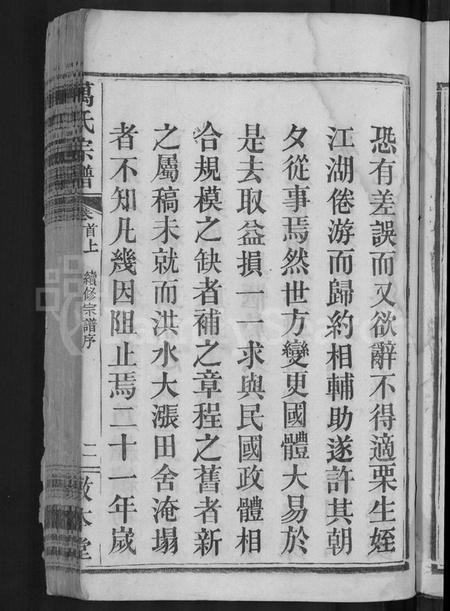 恐有差誤而又欲辭不得適栗生姪
江湖倦游而歸約相輔助遂許其朝
夕從事焉然世方變更國體大易於
是去取益損一一求與民國政體相
合規模之缺者補之章程之舊者新
之屬稿未就而洪水大漲田舍淹塌
者不知凡幾因阻止焉二十一年歲
萬氏宗譜
卷首上
續修宗譜序
二
敦本堂